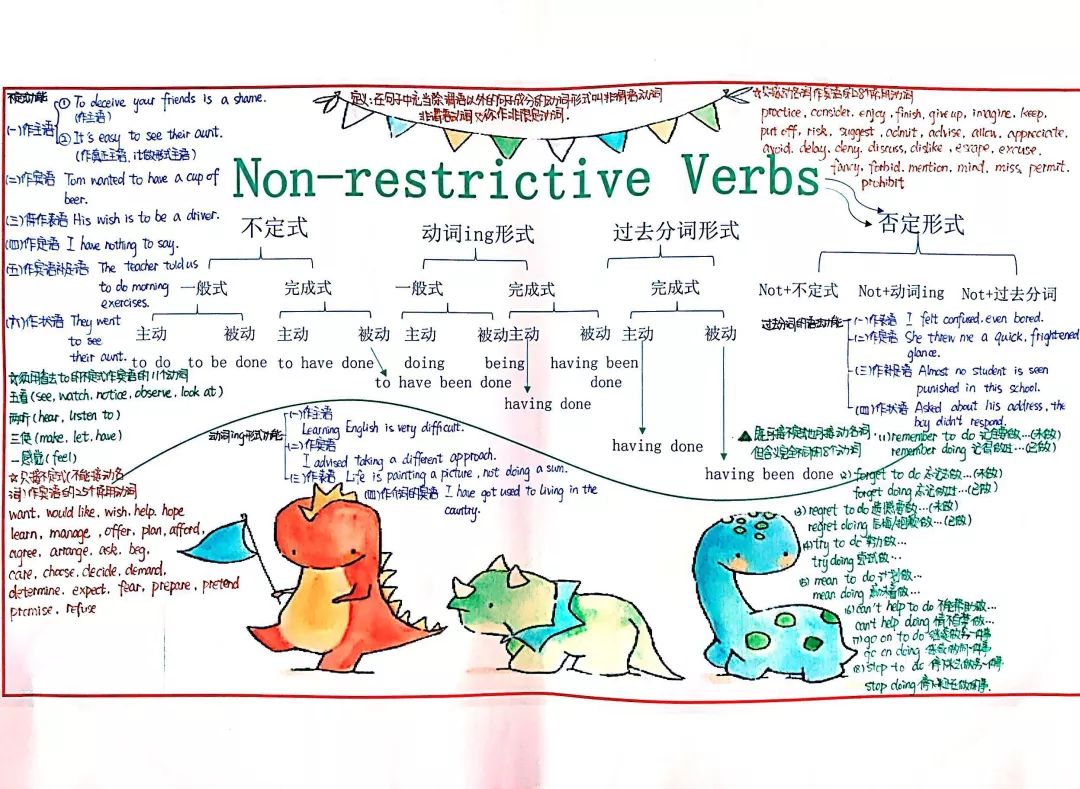 不定式功能
(一)作主语 ① To deceive your friends is a shame.
(作主语)
② It's easy to see their aunt.
(作真正主语, it做形式主语)
(二)作宾语 Tom wanted to have a cup of
beer.
(三)作表语 His wish is to be a driver.
(四)作定语 I have nothing to say.
(五)作宾语补足语 The teacher told us
to do morning
exercises.
(六)作状语 They went
to see
their aunt.
☆须用省去to的不定式作宾语的11个动词
五看(see, watch, notice, observe, look at)
两听(hear, listen to)
三使(make, let, have)
一感觉(feel)
☆只接不定式不能接动名
词)作宾语的25个常用动词
want, would like, wish, help, hope
learn, manage, offer, plan, afford,
agree, arrange, ask, beg,
care, choose, decide, demand,
determine, expect, fear, prepare, pretend
promise, refuse
定义:在句子中充当除谓语以外的句子成分的动词形式叫非谓语动词
非谓语动词又称作非限定动词.
practice, consider, enjoy, finish, give up, imagine, keep,
put off, risk, suggest, admit, advise, allow, appreciate,
avoid, delay, deny, discuss, dislike, escape, excuse,
fancy, forbid, mention, mind, miss, permit,
prohibit
Non-restrictive Verbs
不定式 动词ing形式 过去分词形式 否定形式
一般式 完成式 一般式 完成式 完成式
Not+不定式 Not+动词ing Not+过去分词
主动 被动 主动 被动 主动 被动 主动 被动 主动 被动
to do to be done to have done doing being having been
done
to have been done
having done
having done
having been done
过去分词的语法功能
(一)作表语 I felt confused, even bored.
(二)作定语 She threw me a quick, frightened
glance.
(三)作补足语 Almost no student is seen
punished in this school.
(四)作状语 Asked about his address, the
boy didn't respond.
动词ing形式功能
(一)作主语
Learning English is very difficult.
(二)作宾语
I advised taking a different approach.
(三)作表语 Life is painting a picture, not doing a sum.
(四)作介词的宾语 I have got used to living in the
country.
既可接不定式也可接动名词
但含义完全不同的8个动词
(1)remember to do 记得要做…(未做)
remember doing 记得做过…(已做)
(2)forget to do 忘记做…(未做)
forget doing 忘记做过…(已做)
(3)regret to do 遗憾要做…(未做)
regret doing 后悔/抱歉做…(已做)
(4)try to do 努力做…
try doing 尝试做…
(5)mean to do 计划做…
mean doing 意味着做…
(6)can't help to do 不能帮助做…
can't help doing 情不自禁做…
(7)go on to do 继续做另一件事
go on doing 继续做同一件事
(8)stop to do 停下来去做另一件事
stop doing